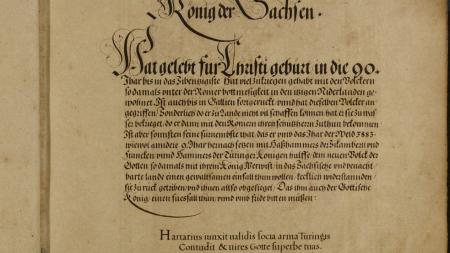 König der Sachsen.
Hat gelebt für Christi geburt in die 90.
Jhar bis in das Sibenzigiste hat viel zukriegen gehabt mit den Völckern
so damals vnter der Römer bottmesigkeit in den itzigen Niderlanden ge-
wohnet. Ist auch bis in Gallien fortgeruckt vnnd hat dieselben Völcker an-
gegriffen/ Sonderlich do er zu Lande nicht vil schaffen können hat er sie zu was-
ser bekriget/ do er dann mit den Römern
Ist aber sonsten seine fürnembste that das er vmb das Jhar der Welt 3883
vnnd Hammero der Düringer Königen hülffe dem newen Volck der
Gotten so damals mit ihrem König in das Sächsische vnd benach-
barte lande einen gewaltsamen einfall thun wollen kecklich widerstannden/
sie zu rück getriben/ vnd ihnen allso obgesieget/ Das ihm auch der Gottische
König einen fuesfall thun/ vnnd vmb fride bitten müssen:
Hartarius iunxit ualidis socia arma Turingis
Contudit & uires Gotte superbe tuas.